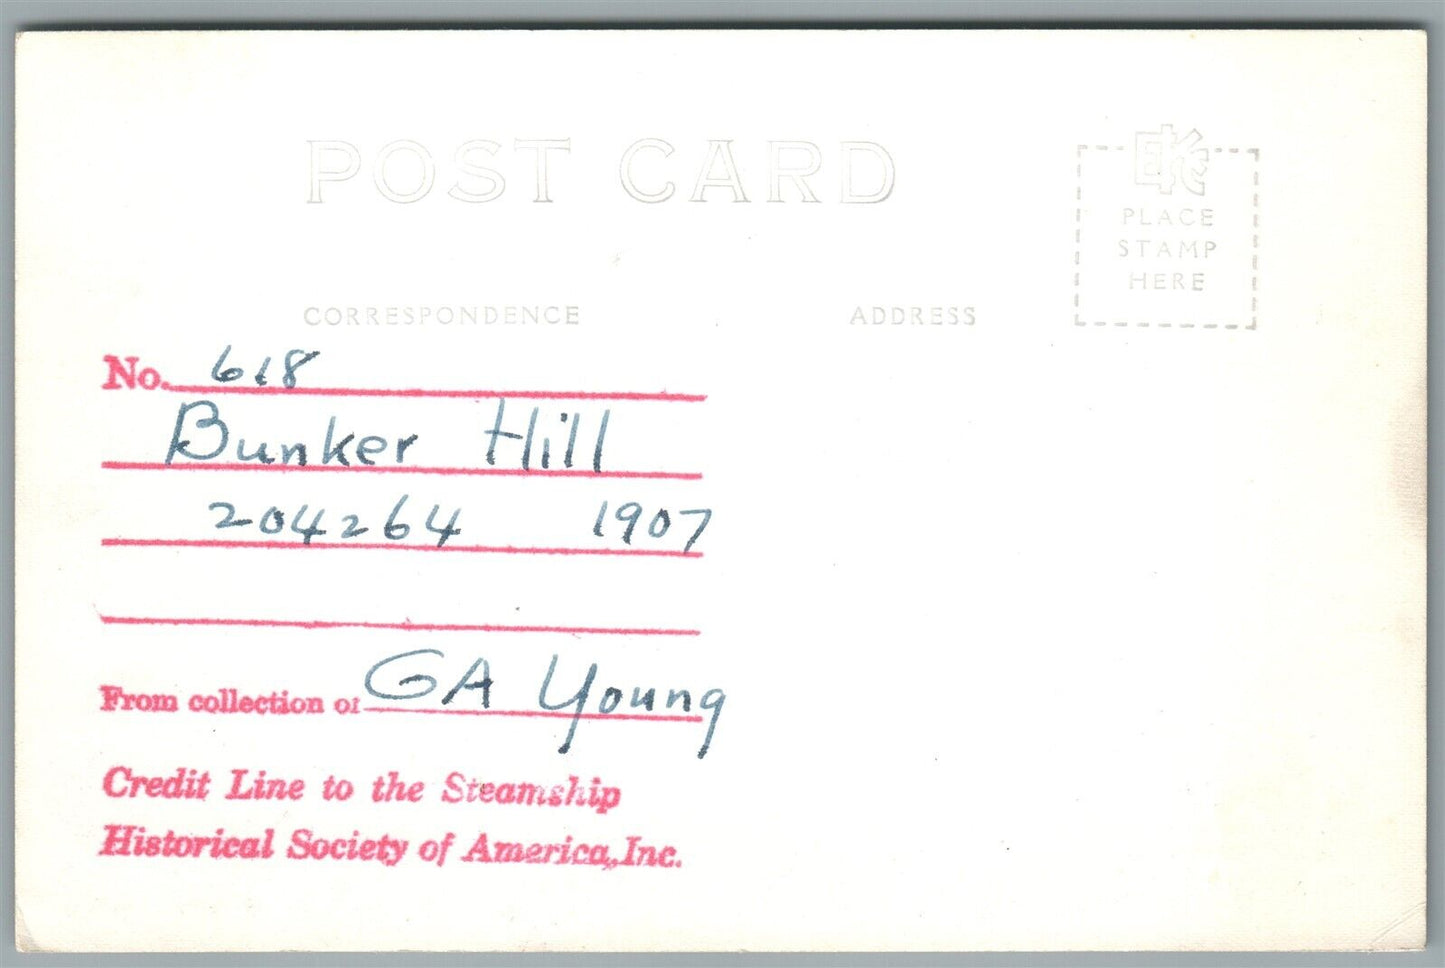 POST CARD
PLACE
STAMP
HERE
CORRESPONDENCE
ADDRESS
No. 618
Bunker Hill
204264 1907
From collection of GA Young
Credit Line to the Steamship
Historical Society of America, Inc.